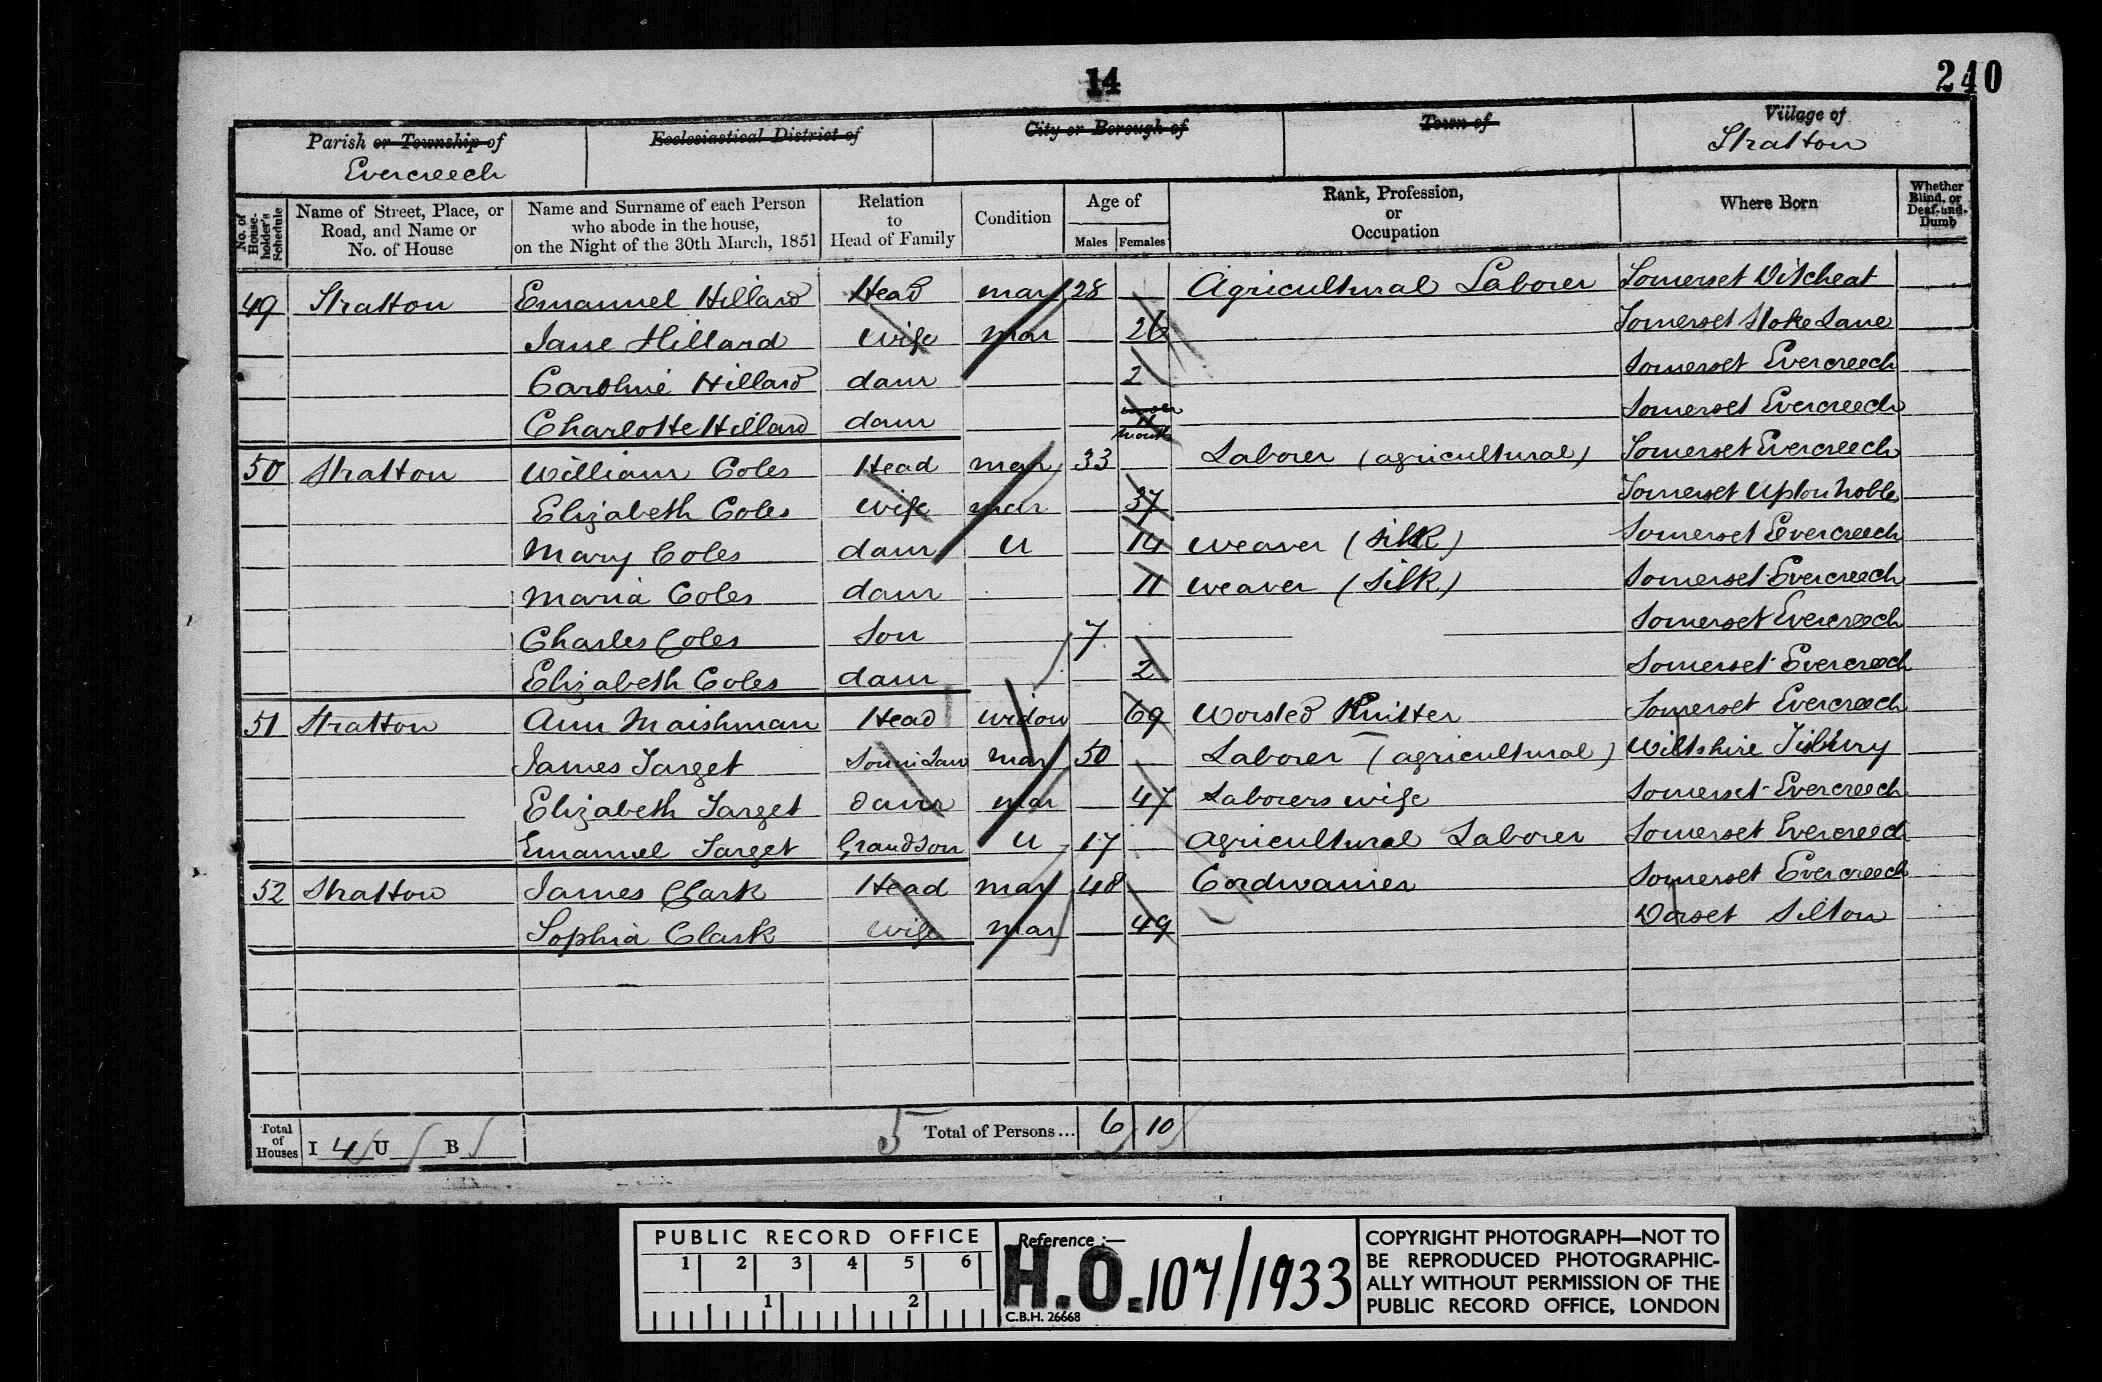 14
240
Parish or Township of
Evercreech
Ecclesiastical District of
City or Borough of
Town of
Village of
Stratton
No. of House-holder's Schedule
Name of Street, Place, or Road, and Name or No. of House
Name and Surname of each Person who abode in the house, on the Night of the 30th March, 1851
Relation to Head of Family
Condition
Age of
Males Females
Rank, Profession, or Occupation
Where Born
Whether Blind, or Deaf-and-Dumb
49 Stratton Emanuel Hillard Head mar 28 Agricultural Laborer Somerset Ditcheat
Jane Hillard Wife mar 26 Somerset Stoke Lane
Caroline Hillard daur 2 Somerset Evercreech
Charlotte Hillard daur months Somerset Evercreech
50 Stratton William Coles Head mar 33 Laborer (agricultural) Somerset Evercreech
Elizabeth Coles Wife mar 37 Somerset Upton noble
Mary Coles daur U 14 Weaver (Silk) Somerset Evercreech
Maria Coles daur 11 Weaver (Silk) Somerset Evercreech
Charles Coles Son 7 Somerset Evercreech
Elizabeth Coles daur 2 Somerset Evercreech
51 Stratton Ann Maishman Head Widow 69 Worsted Knitter Somerset Evercreech
James Target Son in Law mar 50 Laborer (agricultural) Wiltshire Tisbury
Elizabeth Target daur mar 47 Laborers wife Somerset Evercreech
Emanuel Target Grandson U 17 Agricultural Laborer Somerset Evercreech
52 Stratton James Clark Head mar 48 Cordwanier Somerset Evercreech
Sophia Clark Wife mar 49 Dorset Silton
Total of Houses I 4 U B 5 Total of Persons... 6 10
PUBLIC RECORD OFFICE
1 2 3 4 5 6
1 2
Reference :—
H.O. 107/1933
C.B.H. 26668
COPYRIGHT PHOTOGRAPH—NOT TO
BE REPRODUCED PHOTOGRAPHIC-
ALLY WITHOUT PERMISSION OF THE
PUBLIC RECORD OFFICE, LONDON